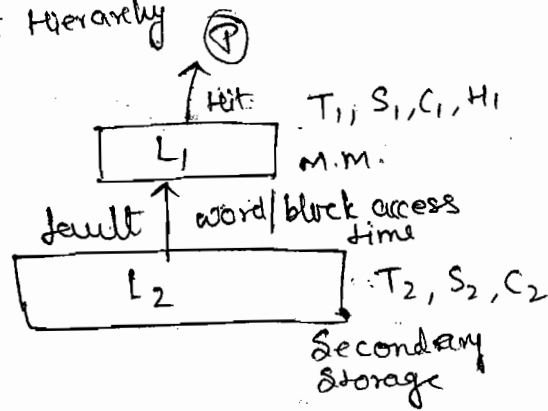 Hierarchy
P
Hit T1, S1, C1, H1
L1 M.M.
fault word/block access
time
L2 T2, S2, C2
Secondary
Storage